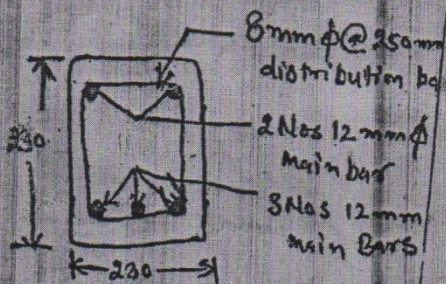 8mm ϕ@ 250mm
distribution ba
230
2Nos 12mmϕ
main bar
3Nos 12mm
Main Bars
230